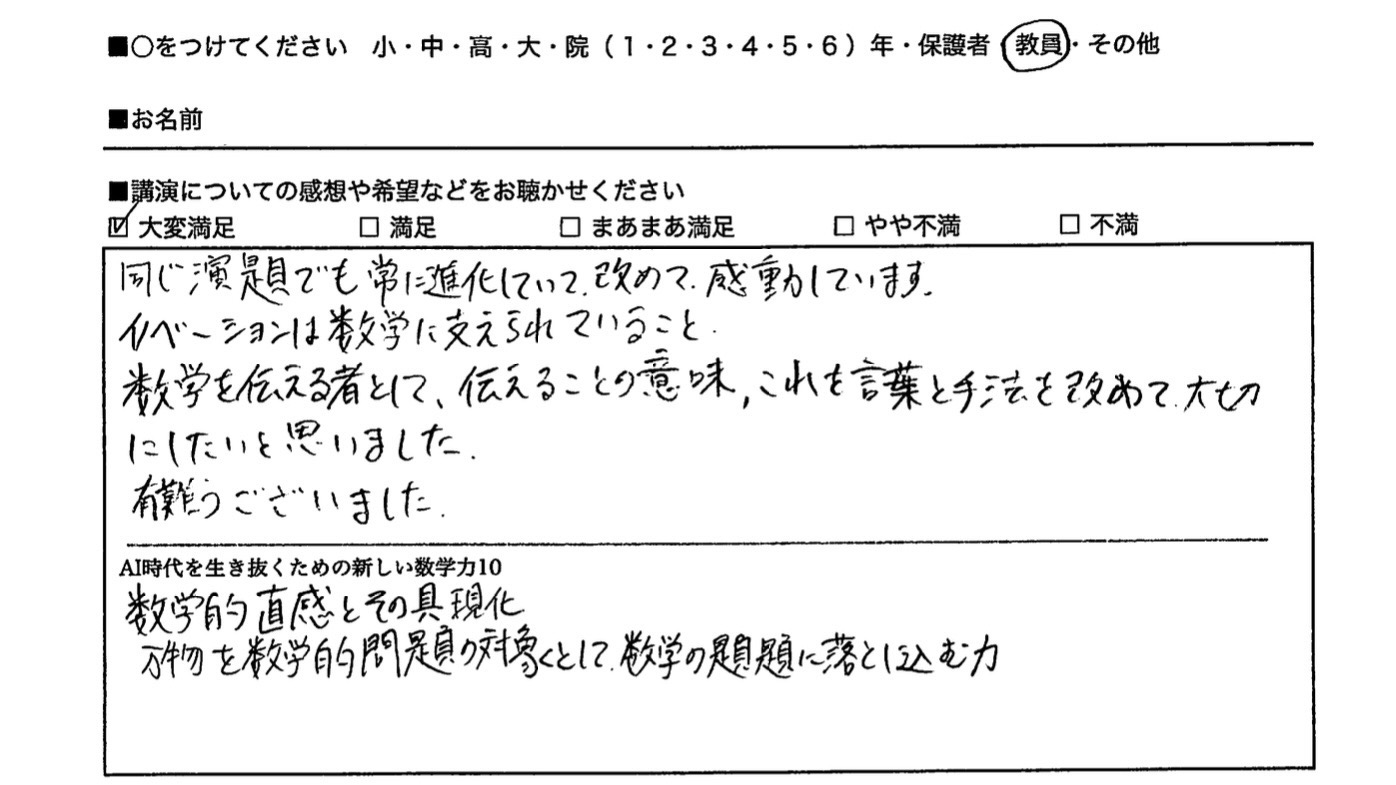 ■○をつけてください 小・中・高・大・院（1・2・3・4・5・6）年・保護者・教員・その他
■お名前
■講演についての感想や希望などをお聴かせください
☑ 大変満足 □ 満足 □ まあまあ満足 □ やや不満 □ 不満
同じ演題でも常に進化していて、改めて、感動しています。
イノベーションは数学に支えられていること.
数学を伝える者として、伝えることの意味,これを言葉と手法を改めて、大切
にしたいと思いました.
有難うございました.
AI時代を生き抜くための新しい数学力10
数学的直感とその具現化
万物を数学的問題の対象くとして、数学の題題に落とし込む力